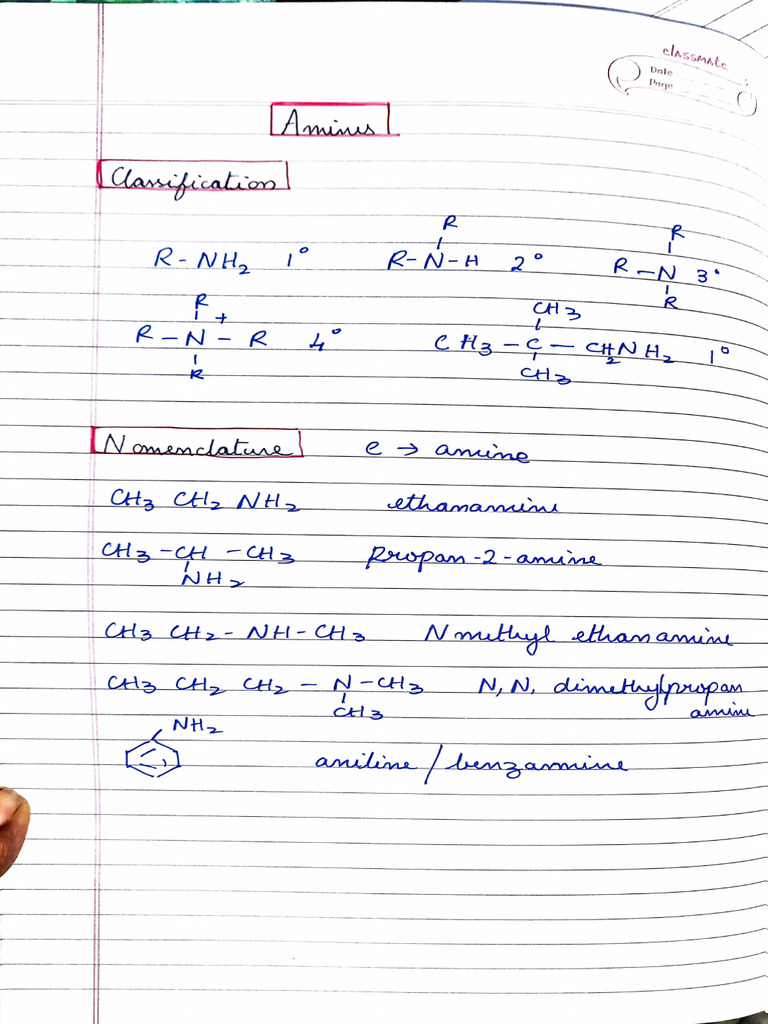 classmate
Date
Page
Amines
Classification
R
R
R - NH2 1°
R - N - H 2°
R - N 3°
R
R
R - N - R 4°
+
R
CH3
CH3 - C - CH2NH2 1°
CH3
Nomenclature e → amine
CH3 CH2 NH2 ethanamine
CH3 - CH - CH3 propan-2-amine
NH2
CH3 CH2 - NH - CH3 N methyl ethanamine
CH3 CH2 CH2 - N - CH3 N, N, dimethylpropan
CH3 amine
NH2
aniline / benzamine